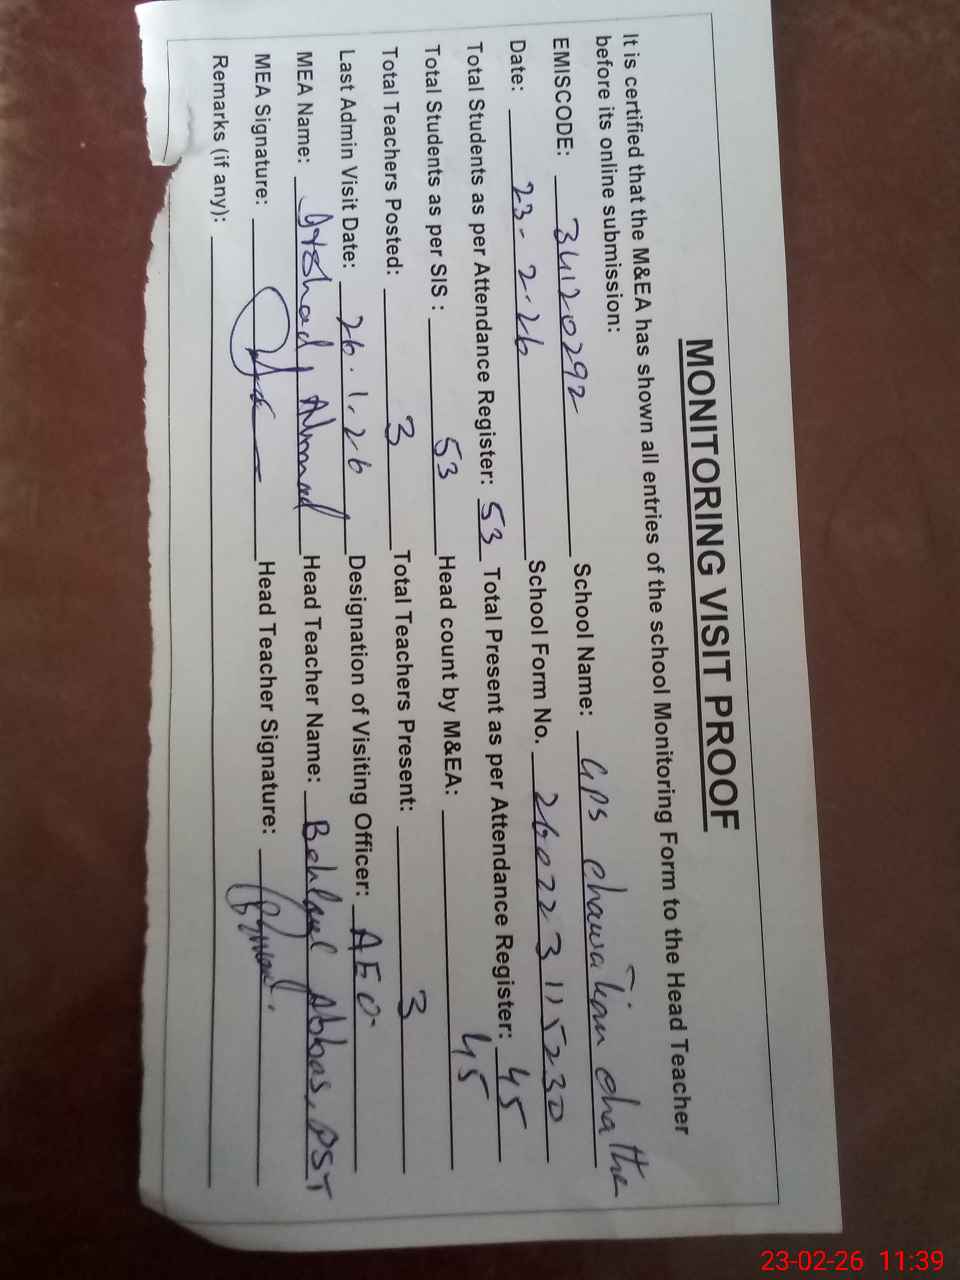 MONITORING VISIT PROOF
It is certified that the M&EA has shown all entries of the school Monitoring Form to the Head Teacher
before its online submission:
EMISCODE: 34120292 School Name: GPS chawalian chathe
Date: 23-2-26 School Form No. 260223115230
Total Students as per Attendance Register: 53 Total Present as per Attendance Register: 45
Total Students as per SIS : 53 Head count by M&EA: 45
Total Teachers Posted: 3 Total Teachers Present: 3
Last Admin Visit Date: 26.1.26 Designation of Visiting Officer: AEO
MEA Name: Irshad Ahmad Head Teacher Name: Abbas, PST
MEA Signature: Head Teacher Signature:
Remarks (if any):
23-02-26 11:39